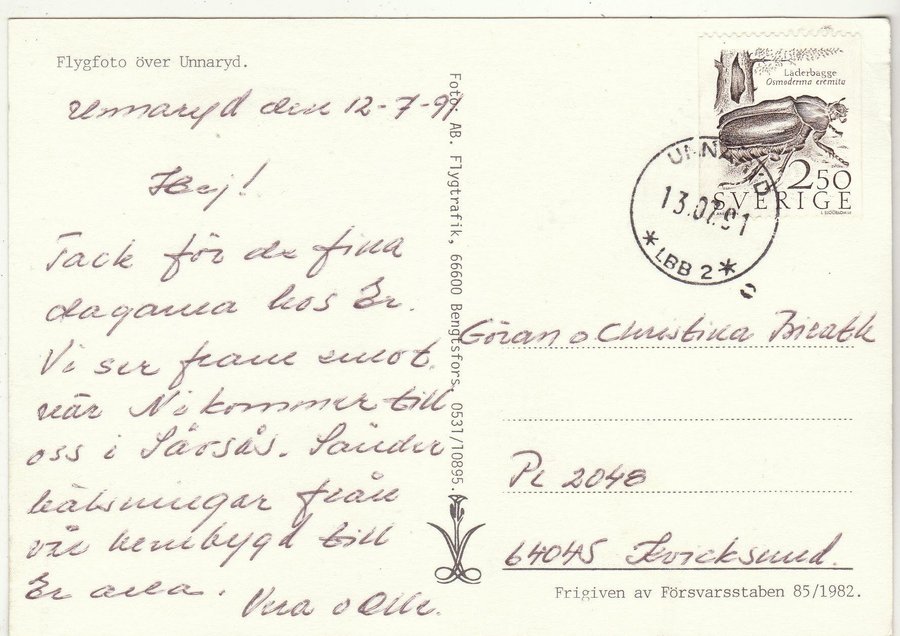 Flygfoto över Unnaryd.
Unnaryd den 12-7-91
Hej!
Tack för de fina
dagarna hos Er.
Vi ser fram emot
när Ni kommer till
oss i Sävsås. Sänder
hälsningar från
vår hembygd till
Er alla.
Vera o Olle.
Foto: AB. Flygtrafik, 66600 Bengtsfors. 0531/10895.
Läderbagge
Osmoderma eremita
2.50
SVERIGE
UNNARYD
13.07.91
* LBB 2 *
Göran o Christina
Pl 2048
64045 Kvicksund.
Frigiven av Försvarsstaben 85/1982.